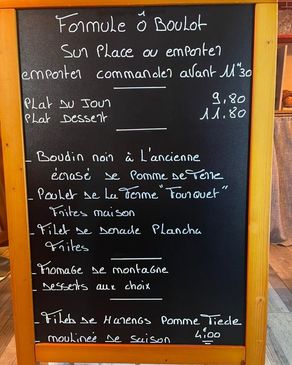 Formule Ô Boulot
Sur Place ou emporter
emporter commander avant 11H30
Plat Du Jour 9,80
Plat Dessert 11.80
_ Boudin noir à L'ancienne
écrasé de Pomme de Terre
_ Poulet de La Ferme "Fourquet"
Frites maison
_ Filet de Dorade Plancha
Frites
_ Fromage de montagne
_ Desserts aux choix
_ Filets de Harengs Pomme Tiede
_ moulinée de saison 4€00